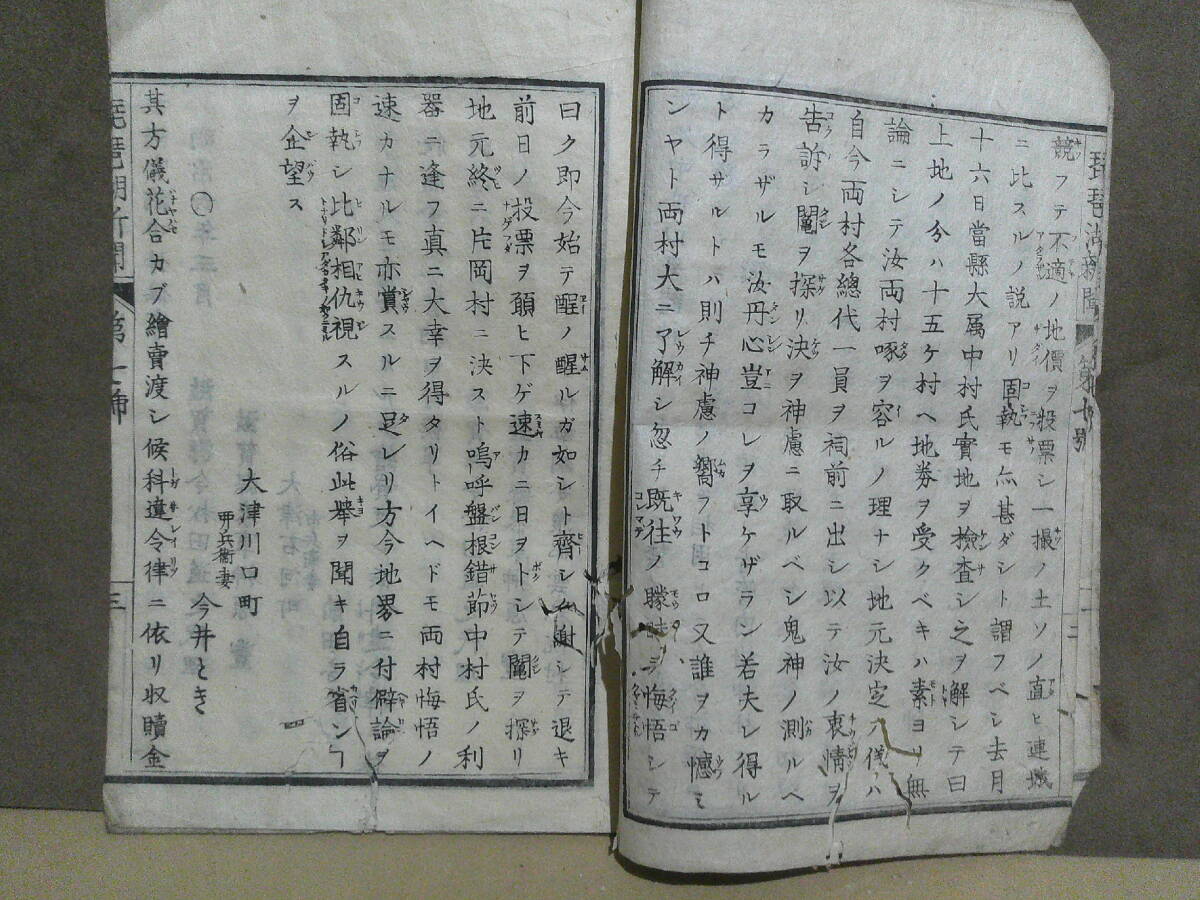 琵琶湖新聞 第十號 二
競フテ不適ノ地價ヲ投票シ一撮ノ土ソノ直ヒ連城
ニ比スルノ説アリ固執モ亦甚ダシト謂フベシ去月
十六日當縣大属中村氏實地ヲ檢査シ之ヲ解シテ曰
上地ノ分ハ十五ケ村ヘ地券ヲ受クベキハ素ヨリ無
論ニシテ汝両村啄ヲ容ルノ理ナシ地元決定ノ儀ハ
自今両村各總代一員ヲ祠前ニ出シ以テ汝ノ衷情ヲ
告訴シ鬮ヲ探リ決ヲ神慮ニ取ルベシ鬼神ノ測ルヘ
カラザルモ汝丹心豈コレヲ享ケザラン若夫レ得ル
ト得サルトハ則チ神慮ノ嚮フトコロ又誰ヲカ憾ミ
ンヤト両村大ニ了解シ忽チ既往ノ朦昧ヲ悔悟シテ
曰ク即今始テ醒ノ醒ルガ如シト齊シク謝シテ退キ
前日ノ投票ヲ願ヒ下ゲ速カニ日ヲトシテ鬮ヲ探リ
地元終ニ片岡村ニ決スト嗚呼盤根錯節中村氏ノ利
器ニ逢フ真ニ大幸ヲ得タリトイヘドモ両村悔悟ノ
速カナルモ亦賞スルニ足レリ方今地界ニ付僻論ヲ
固執シ比鄰相仇視スルノ俗此擧ヲ聞キ自ラ省ンヿ
ヲ企望ス
大津川口町
兵衛妻 今井とき
其方儀花合カブ繪賣渡シ候科違令律ニ依リ収贖金
琵琶湖新聞 第十號 三